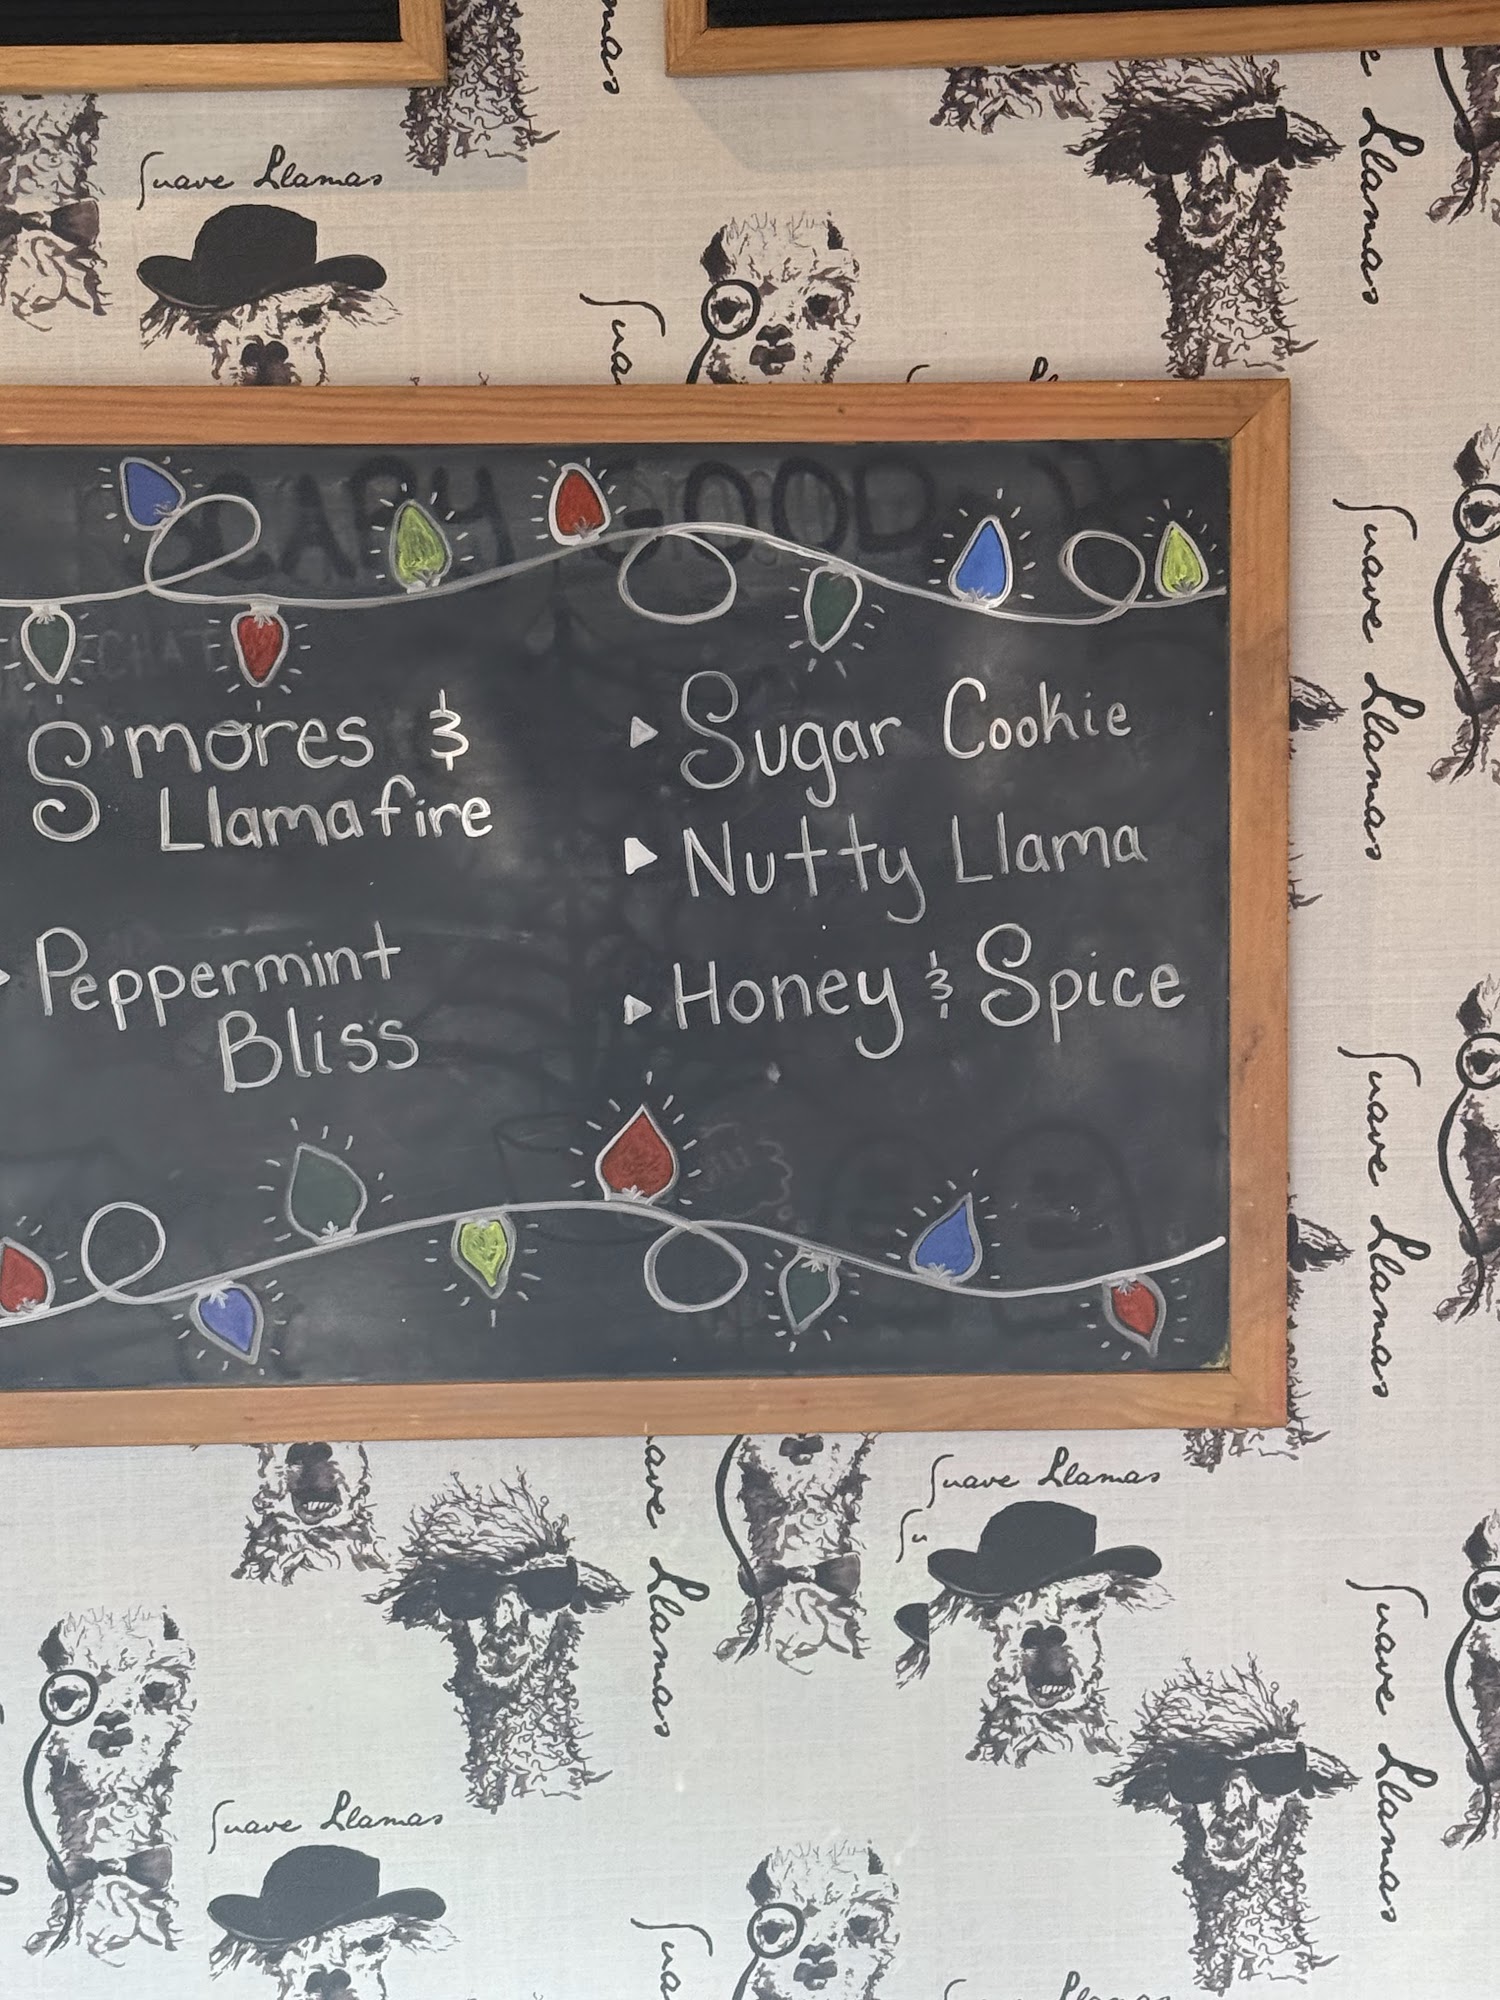 Suave Llamas
Llamas
SCARY GOOD
S'mores &
Llamafire
Peppermint
Bliss
Sugar Cookie
Nutty Llama
Honey & Spice
Suave Llamas
Suave Llamas
Suave Llamas
Llamas
Suave Llamas
Suave Llamas